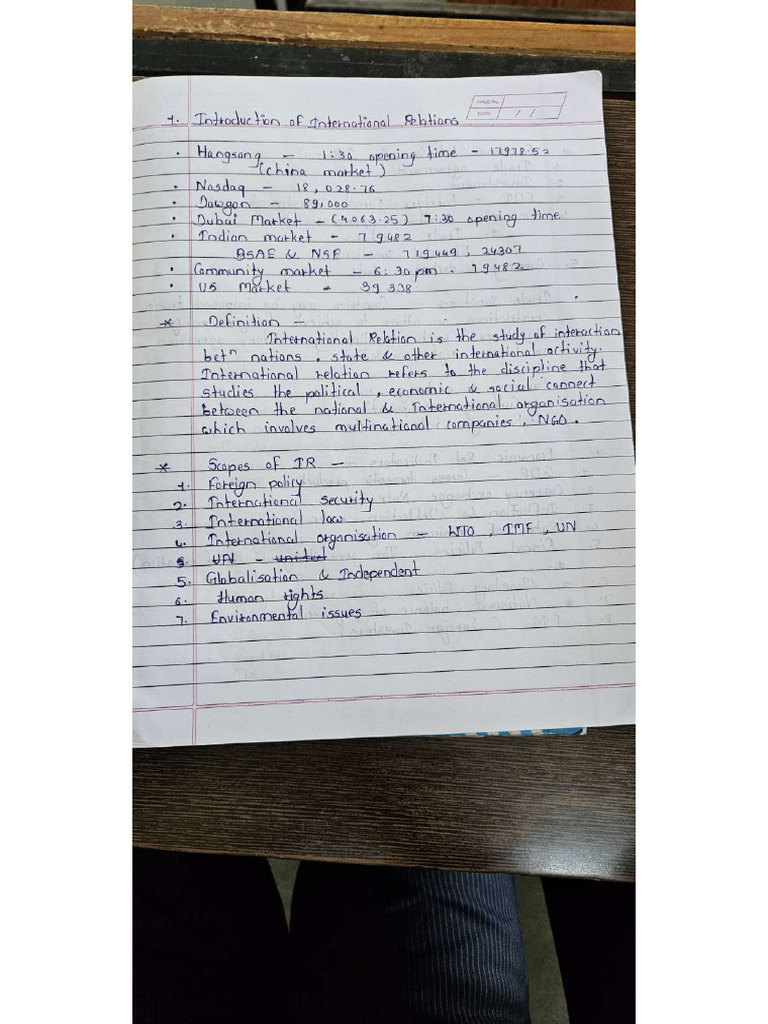 PAGE No.
DATE / /
1. Introduction of International Relations
• Hangsang - 1:30 opening time - 17978.52
(China market)
• Nasdaq - 18,028.76
• Dawgon - 89,000
• Dubai Market - (4063.25) 7:30 opening time
• Indian market - 79482
BSAE & NSE - 719449, 24307
• Community market - 6:30 pm - 79482
• US market - 39338
* Definition -
International Relation is the study of interaction
betⁿ nations, state & other international activity.
International relation refers to the discipline that
studies the political, economic & social connect
between the national & International organisation
which involves multinational companies, NGO.
* Scopes of IR -
1. Foreign policy
2. International security
3. International law
4. International organisation - WTO, IMF, UN
5. UN - united
5. Globalisation & Independent
6. Human rights
7. Environmental issues